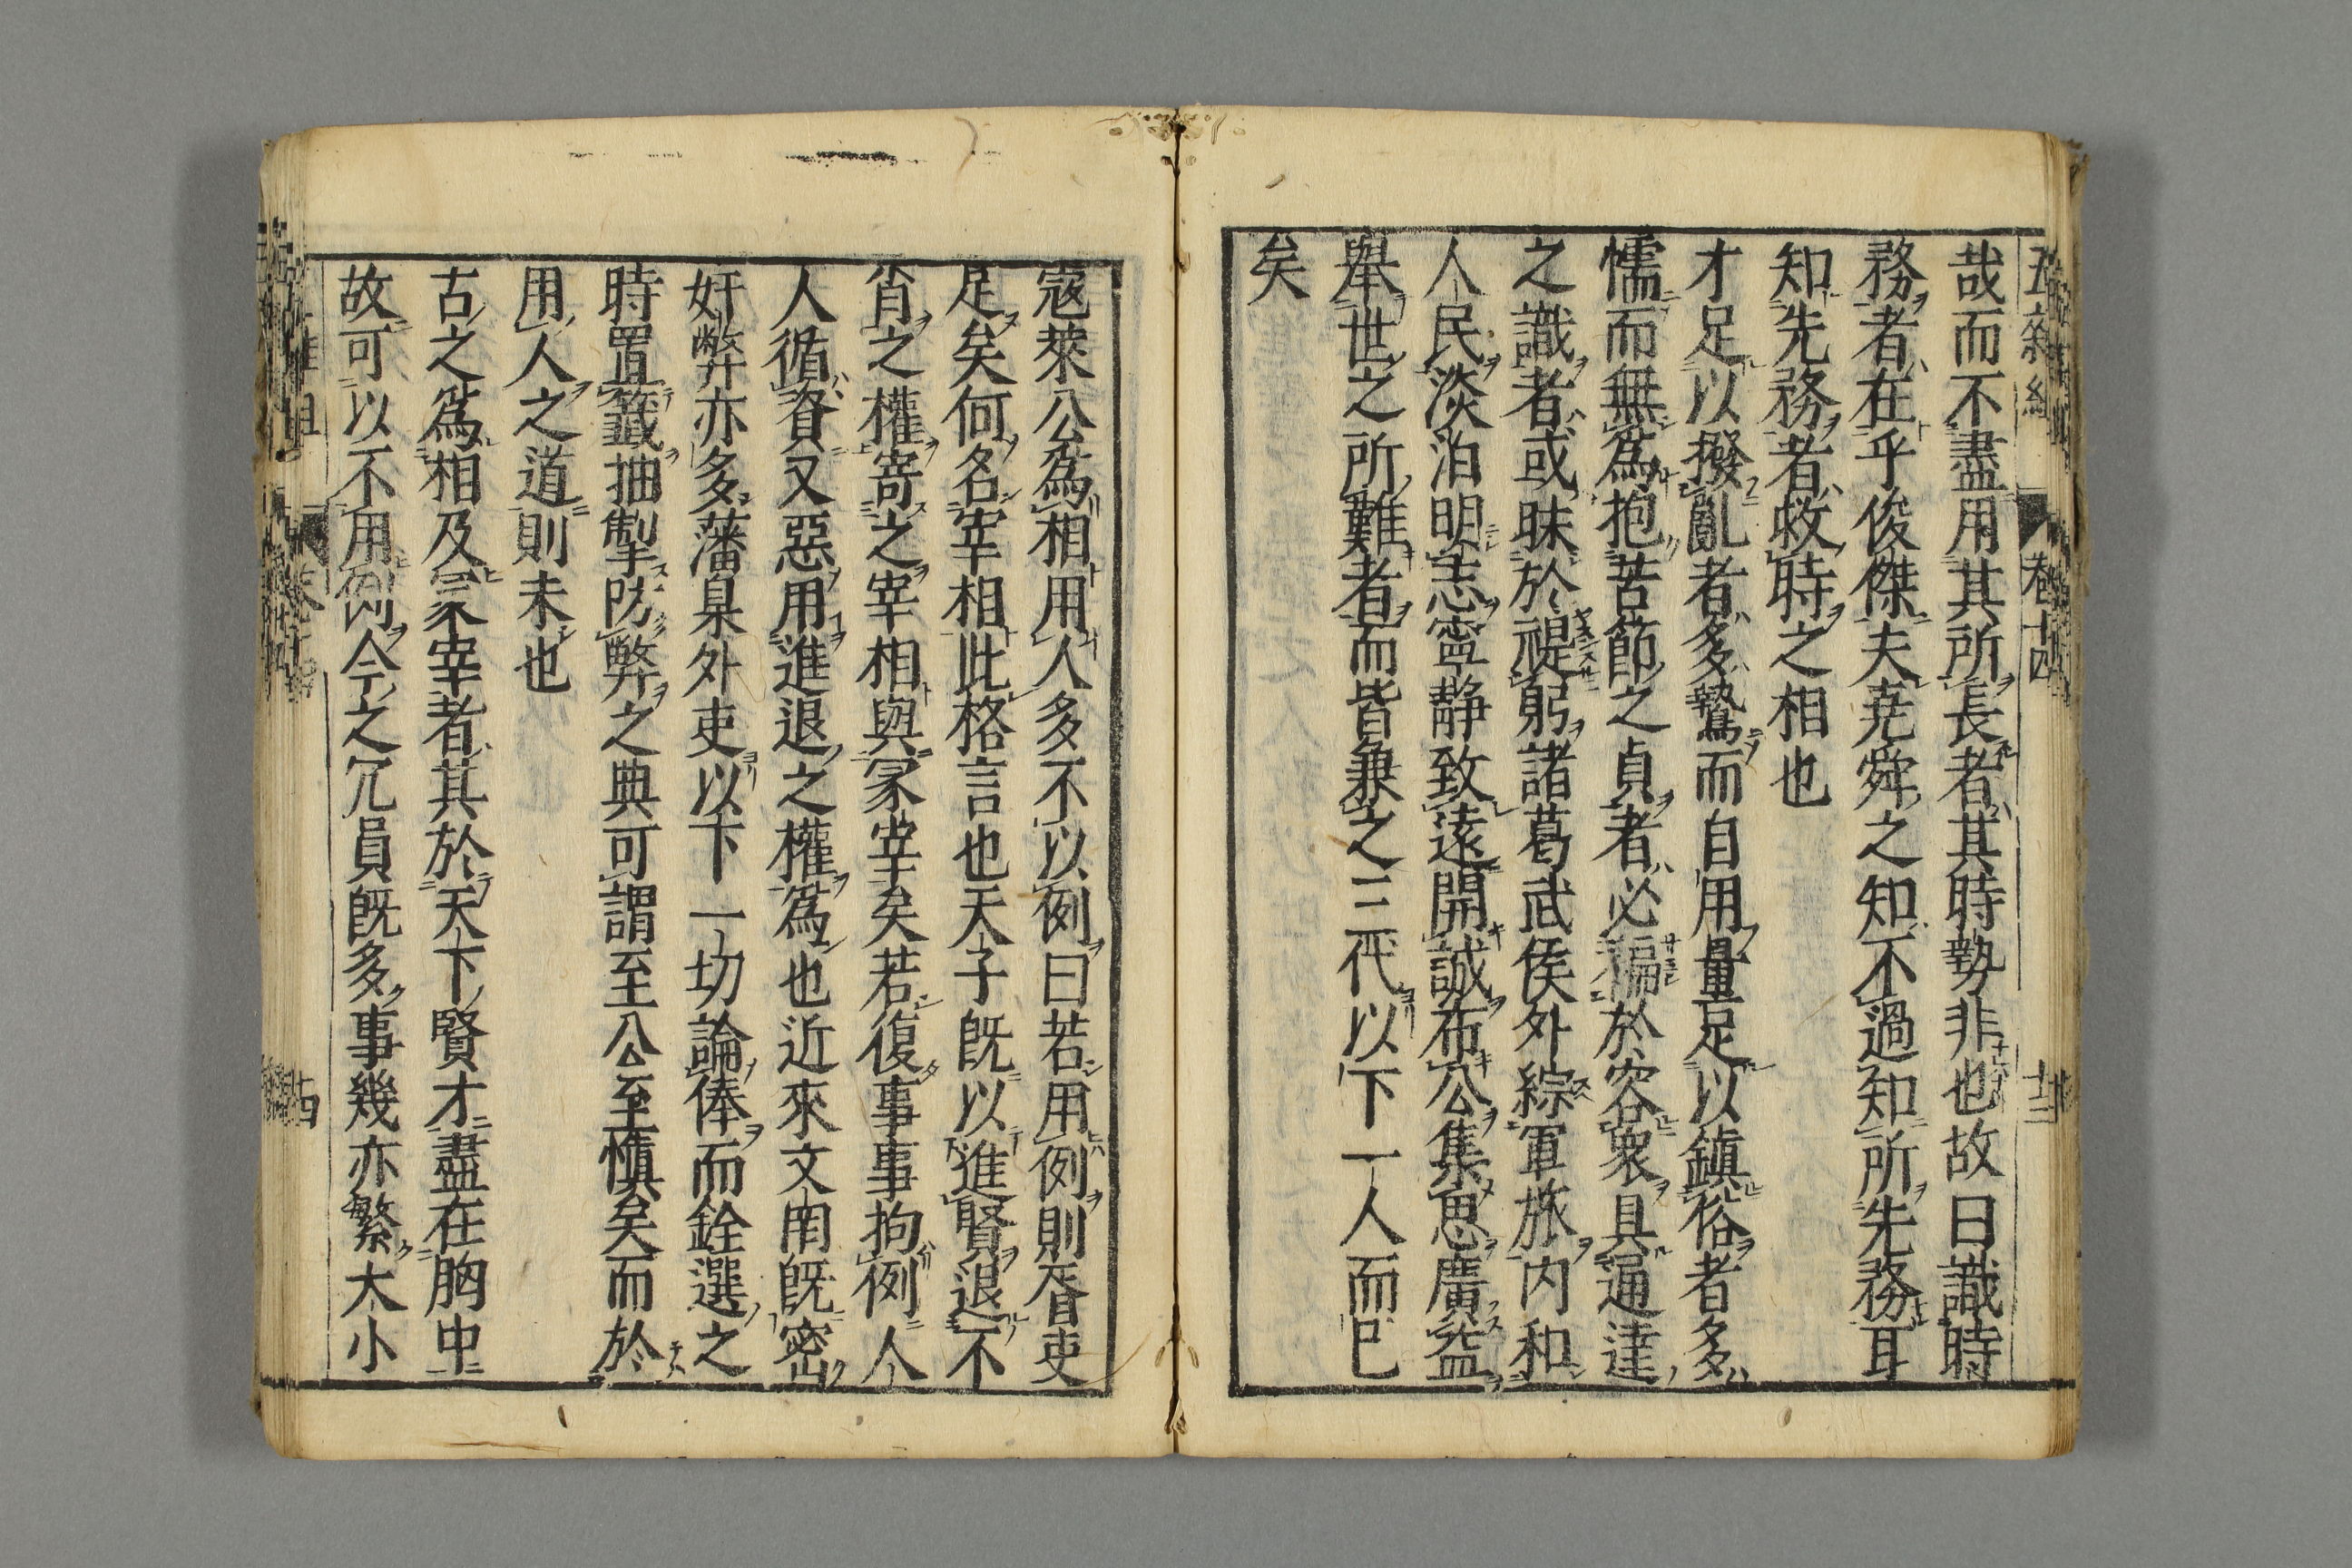 五雜組 卷十四 十三
哉而不盡用其所長者其時勢非也故曰識時
務者在乎俊傑夫堯舜之知不過知所先務耳
知先務者救時之相也
才足以撥亂者多鷙而自用量足以鎮俗者多
懦而無爲抱苦節之貞者必褊於容衆具通達
之識者或昧於禔躬諸葛武侯外綜軍旅内和
人民淡泊明志寧靜致遠開誠布公集思廣益
舉世之所難者而皆兼之三代以下一人而已
矣
寇萊公爲相用人多不以例曰若用例則胥吏
足矣何名宰相此格言也天子既以進賢退不
肖之權寄之宰相與冡宰矣若復事事拘例人
人循資又惡用進退之權爲也近來文罔既密
奸弊亦多藩臬外吏以下一切論俸而銓選之
時置籤抽掣防弊之典可謂至公至愼矣而於
用人之道則未也
古之爲相及冡宰者其於天下賢才盡在胸中
故可以不用例今之冗員既多事幾亦繁大小